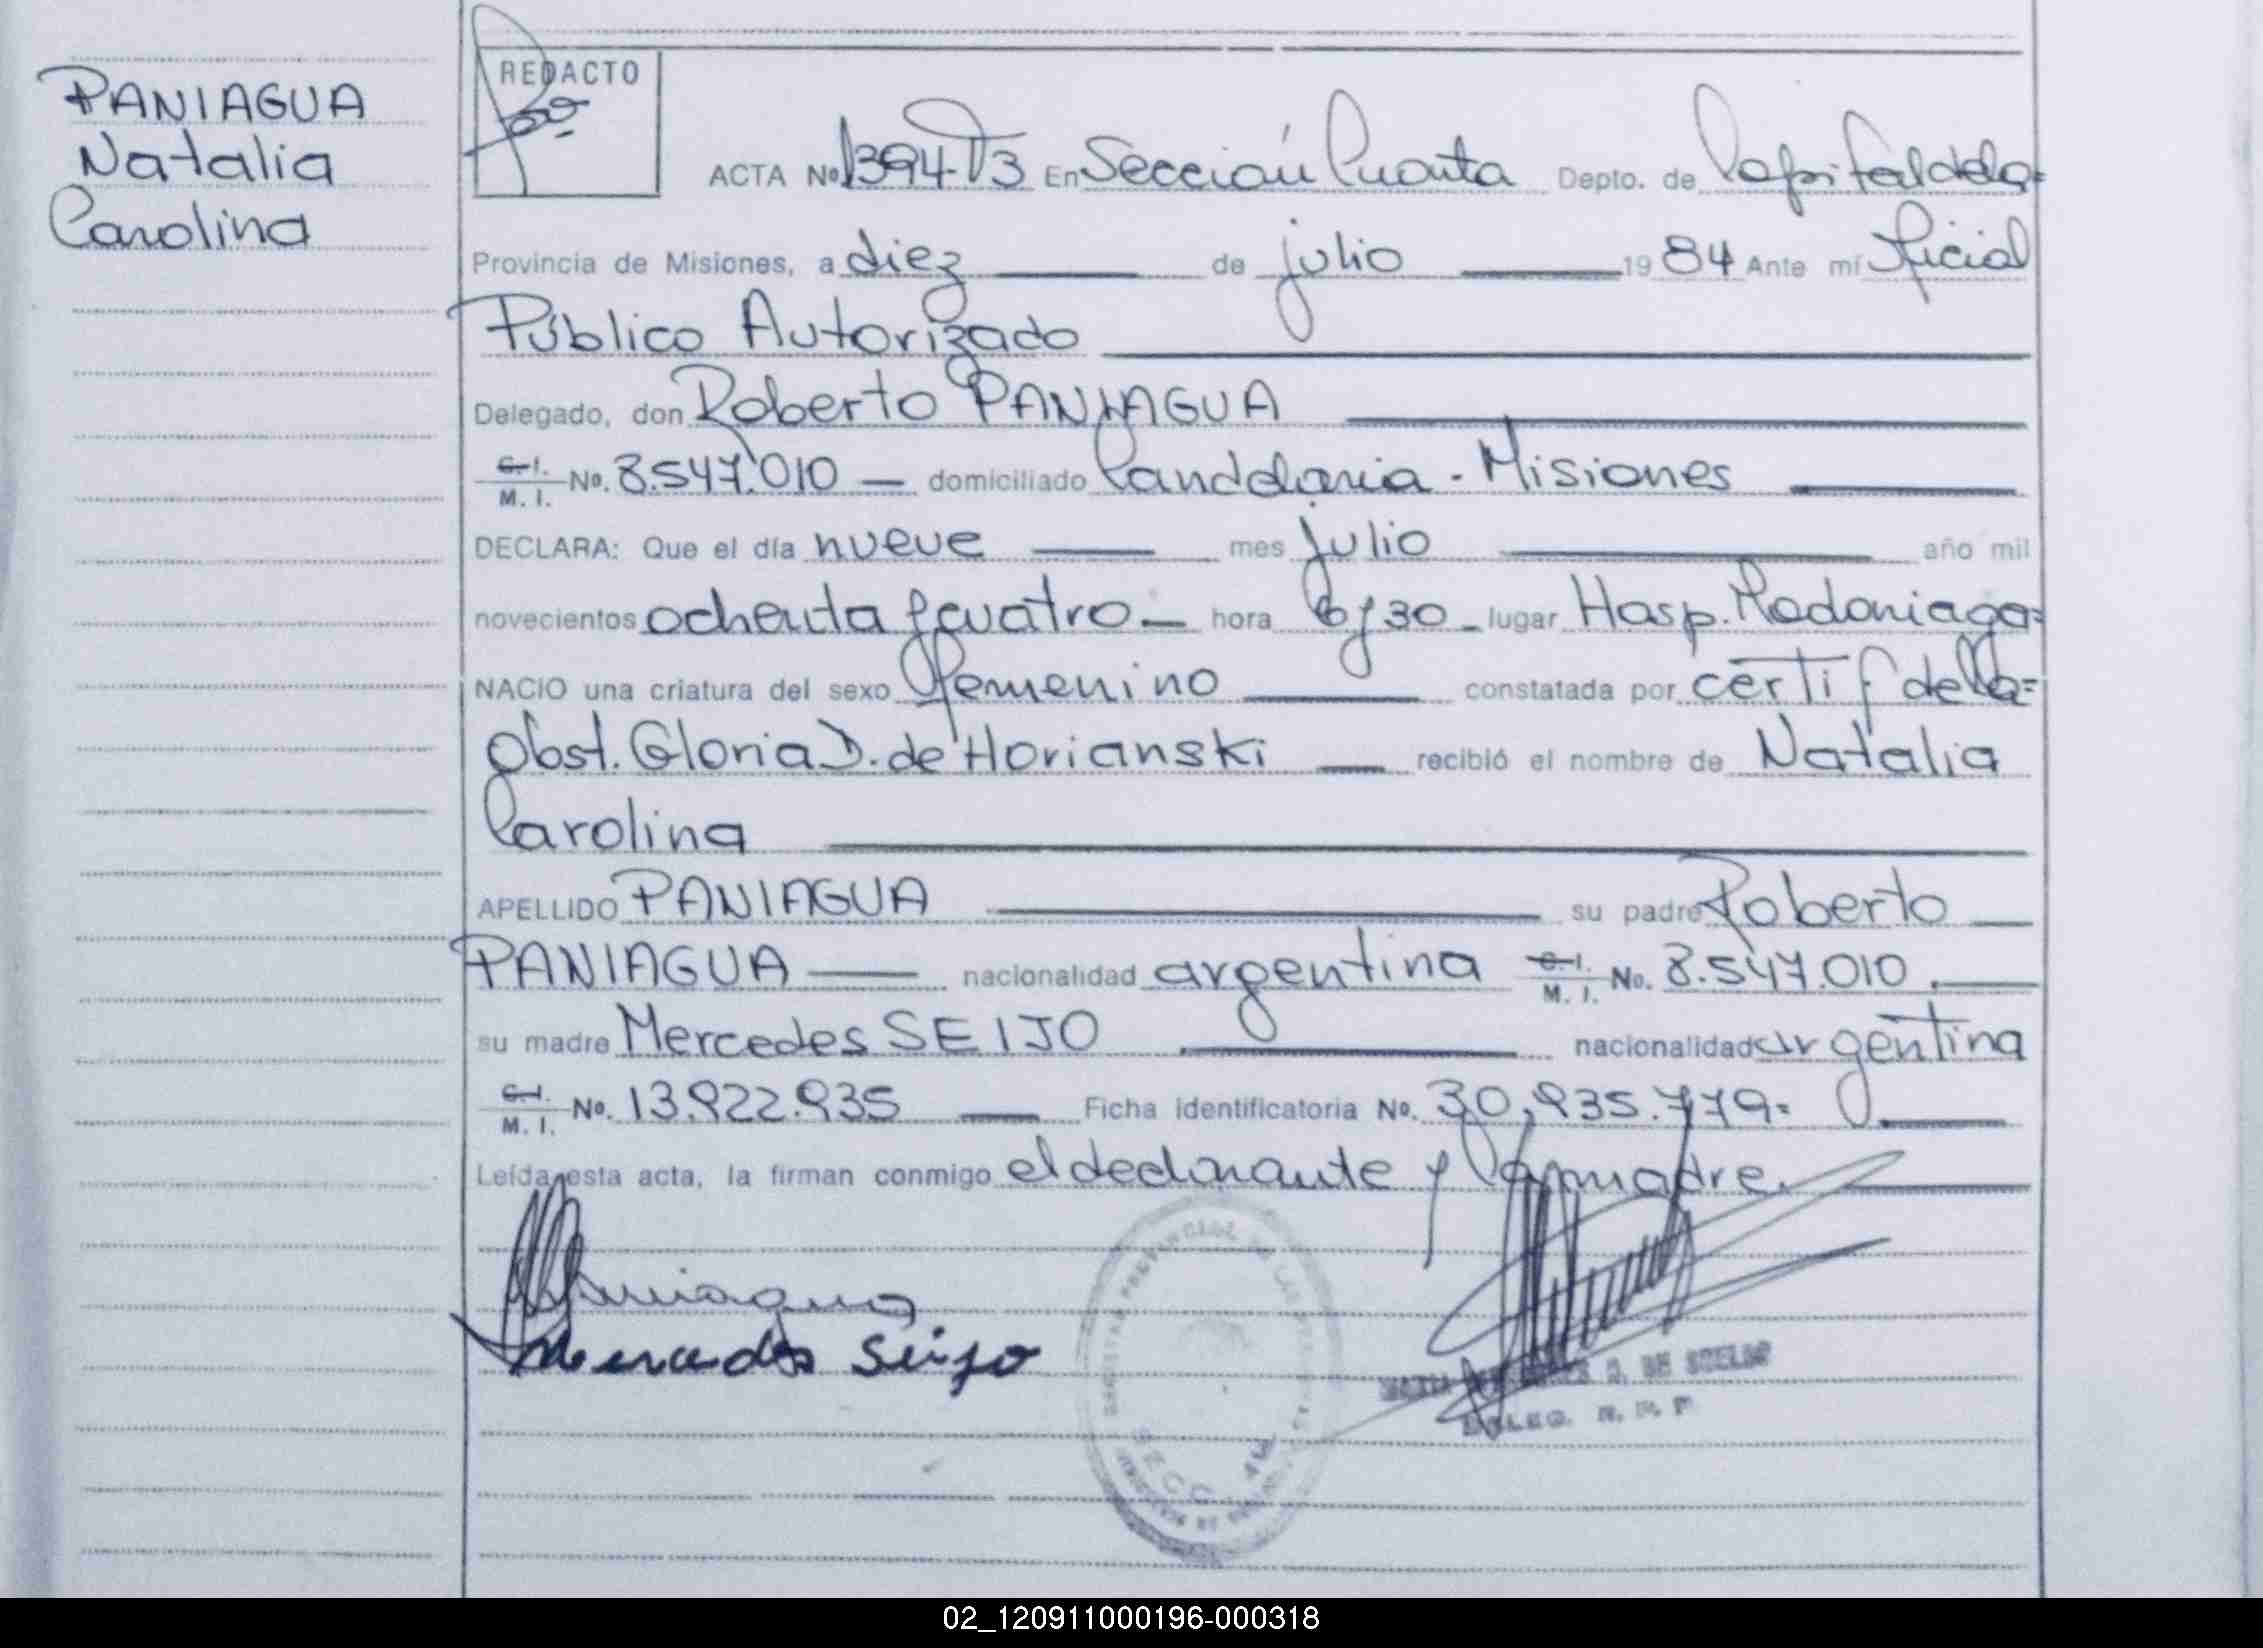 PANIAGUA
Natalia
Carolina
REDACTO
ACTA No 1394-T3 En Sección Cuarta Depto. de Capital de la=
Provincia de Misiones, a diez de julio 1984 Ante mí Oficial
Público Autorizado
Delegado, don Roberto PANIAGUA
C.I. M.I. No. 8.547.010 — domiciliado Candelaria - Misiones
DECLARA: Que el día nueve mes julio año mil
novecientos ochenta y cuatro — hora 6y30 - lugar Hosp. Madariaga=
NACIO una criatura del sexo femenino constatada por certif de la=
Obst. Gloria D. de Horianski — recibió el nombre de Natalia
Carolina
APELLIDO PANIAGUA su padre Roberto —
PANIAGUA — nacionalidad argentina C.I. M.I. No. 8.547.010.
su madre Mercedes SEIJO nacionalidad argentina
C.I. M.I. No. 13.922.935 — Ficha identificatoria No. 30.935.779=
Leída esta acta, la firman conmigo el declarante y la madre.
Paniagua
Mercedes Seijo
DE
DELEG. R. P. P
SECC. 4ta
02_120911000196-000318